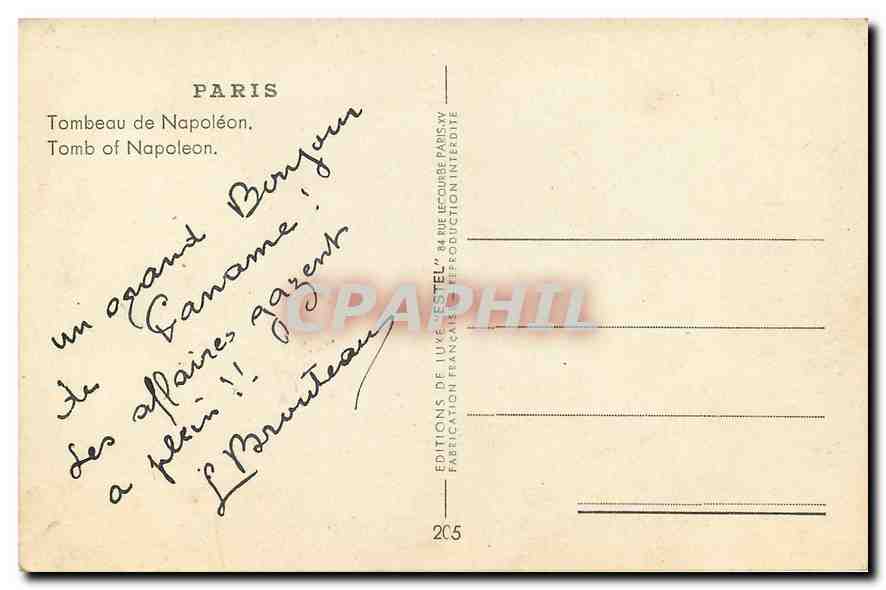 PARIS
Tombeau de Napoléon.
Tomb of Napoleon.
un grand Bonjour
de Paname!
Les affaires gazent
a plein!!
L Brouteau
EDITIONS DE LUXE "ESTEL" 84 RUE LECOURBE PARIS-XV
FABRICATION FRANÇAISE REPRODUCTION INTERDITE
205
CPAPHIL